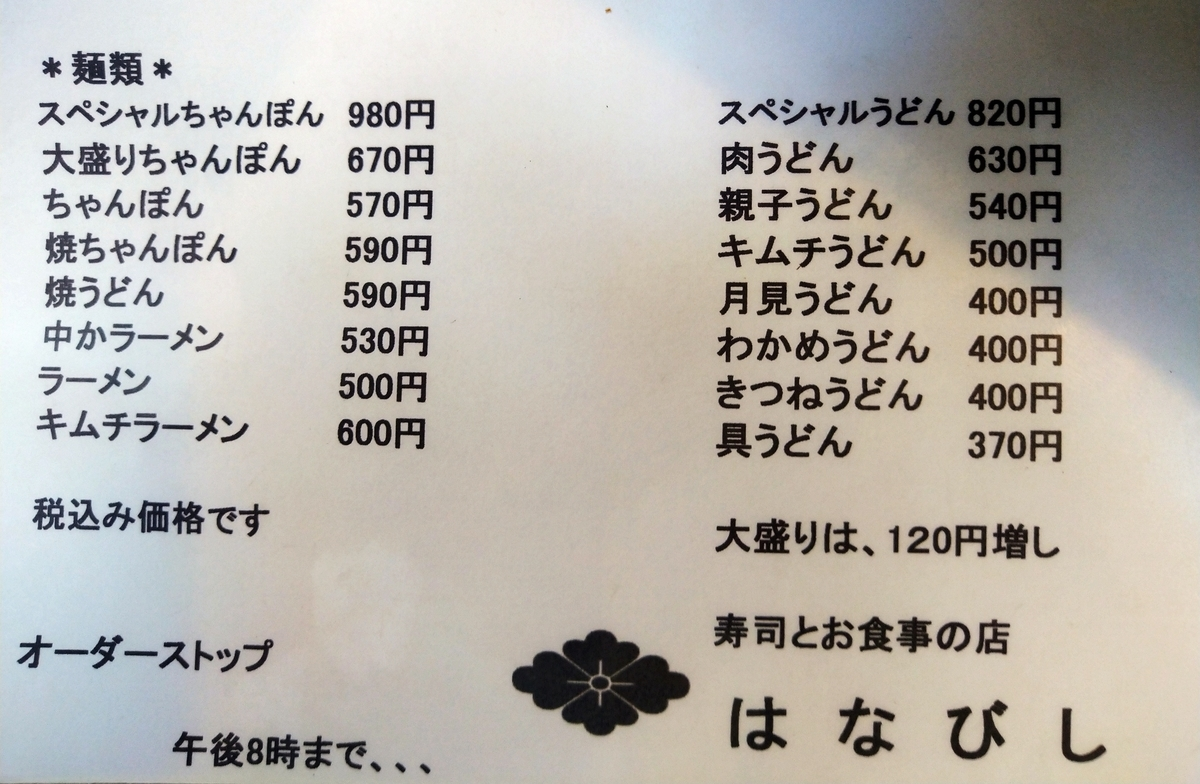 ＊麺類＊
スペシャルちゃんぽん 980円
大盛りちゃんぽん 670円
ちゃんぽん 570円
焼ちゃんぽん 590円
焼うどん 590円
中かラーメン 530円
ラーメン 500円
キムチラーメン 600円
税込み価格です
オーダーストップ
午後8時まで、、、
スペシャルうどん 820円
肉うどん 630円
親子うどん 540円
キムチうどん 500円
月見うどん 400円
わかめうどん 400円
きつねうどん 400円
具うどん 370円
大盛りは、120円増し
寿司とお食事の店
はなびし